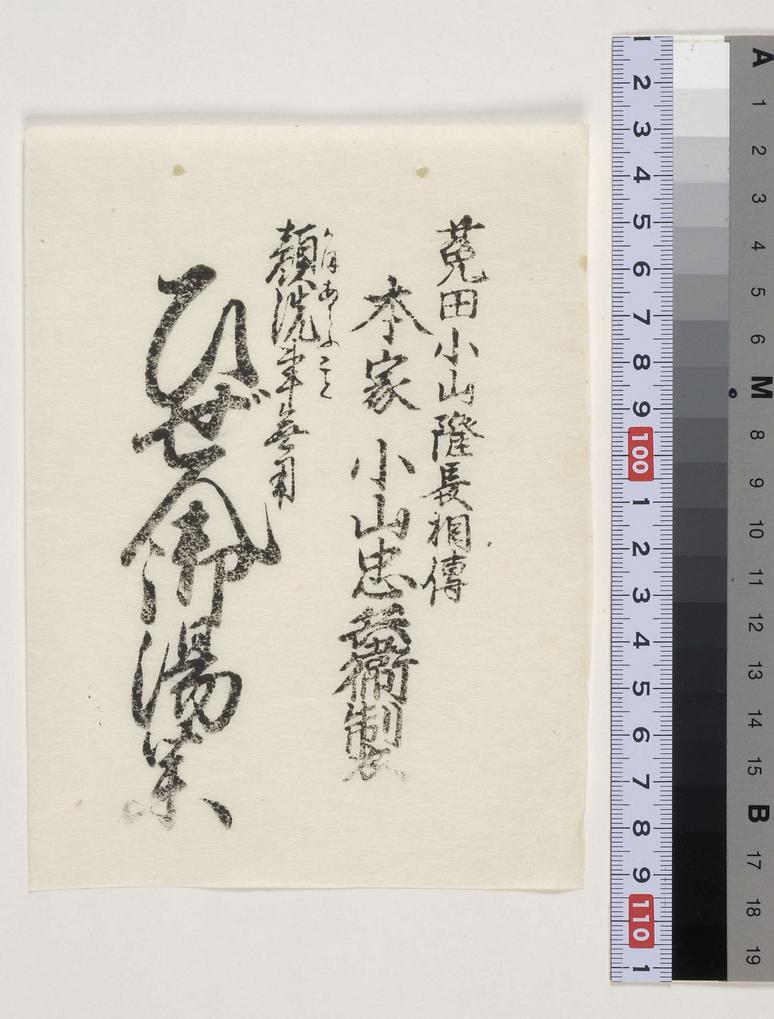 菟田小山隆長相傳
本家 小山忠兵衛製
かほあらふこと
顔洗事無用
ひぜ湯薬
1 2 3 4 5 6 7 8 9 100 1 2 3 4 5 6 7 8 9 110 1
A 1 2 3 4 5 6 M 8 9 10 11 12 13 14 15 B 17 18 19